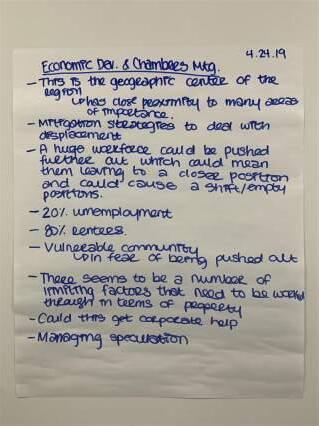 4.24.19
Economic Dev. & Chambers Mtg.
- This is the geographic center of the
region
↳ has close proximity to many areas
of importance.
- Mitigation strategies to deal with
displacement
- A huge workforce could be pushed
further out which could mean
them leaving to a closer position
and could cause a shift/empty
positions.
- 20% unemployment
- 80% rentees.
- Vulnerable community
↳ in fear of being pushed out
- There seems to be a number of
limiting factors that need to be worked
through in terms of property
- Could this get corporate help
- Managing speculation